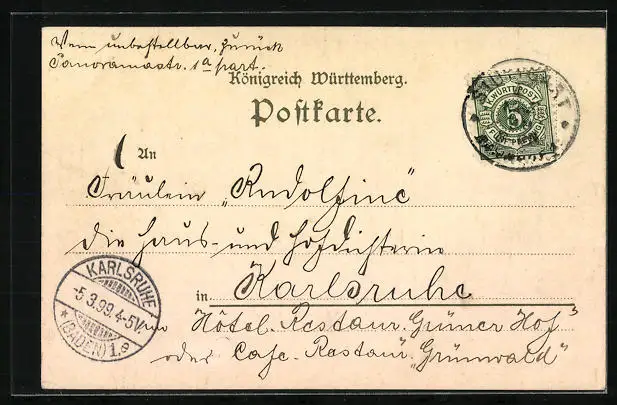 Wenn unbestellbar, zurück
Panoramastr. 1a part.
Königreich Württemberg.
Postkarte.
K. WÜRTT. POST
5
FÜNF PFENNIG
An
Fräulein „Rudolfine“
die Haus- und Hofdichterin
in Karlsruhe
KARLSRUHE
-5.3.99.4-5V.
(BADEN) 1.e
Hôtel-Restaur. Grüner Hof
oder Cafe-Restaur. „Grünwald“